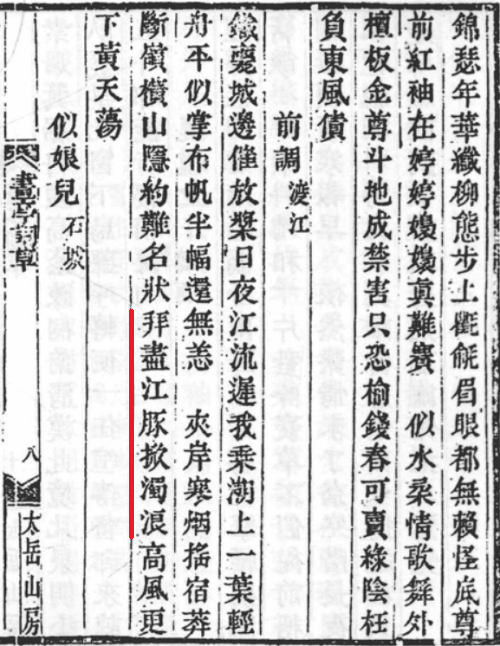 錦瑟年華纖柳態步上氍毹眉眼都無賴怪底尊
前紅袖在婷婷嫚嫚真難賽 似水柔情歌舞外
檀板金尊斗地成禁害只恐榆錢春可賣綠陰枉
負東風債
前調 渡江
鐵甕城邊催放槳日夜江流遲我乘潮上一葉輕
舟平似掌布帆半幅還無恙 夾岸寒烟搖宿莽
斷嶺橫山隱約難名狀拜盡江豚掀濁浪高風更
下黃天蕩
似娘兒 石
畫亭詞草 八 大岳山房